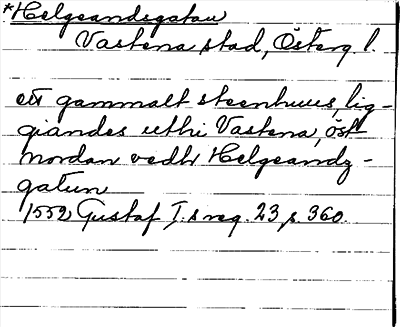 *Helgeandsgatan
Vastena stad, Österg l.
ett gammalt steenhuus, lig-
giandes uthi Vastena, öst
nordan vedh Helgeandz-
gatun
1552 Gustaf I.s reg. 23, s. 360.